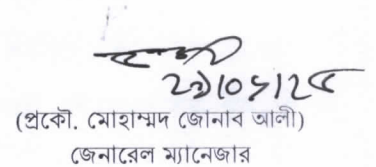 ২১/০১/২৫
(প্রকৌ. মোহাম্মদ জোনাব আলী)
জেনারেল ম্যানেজার